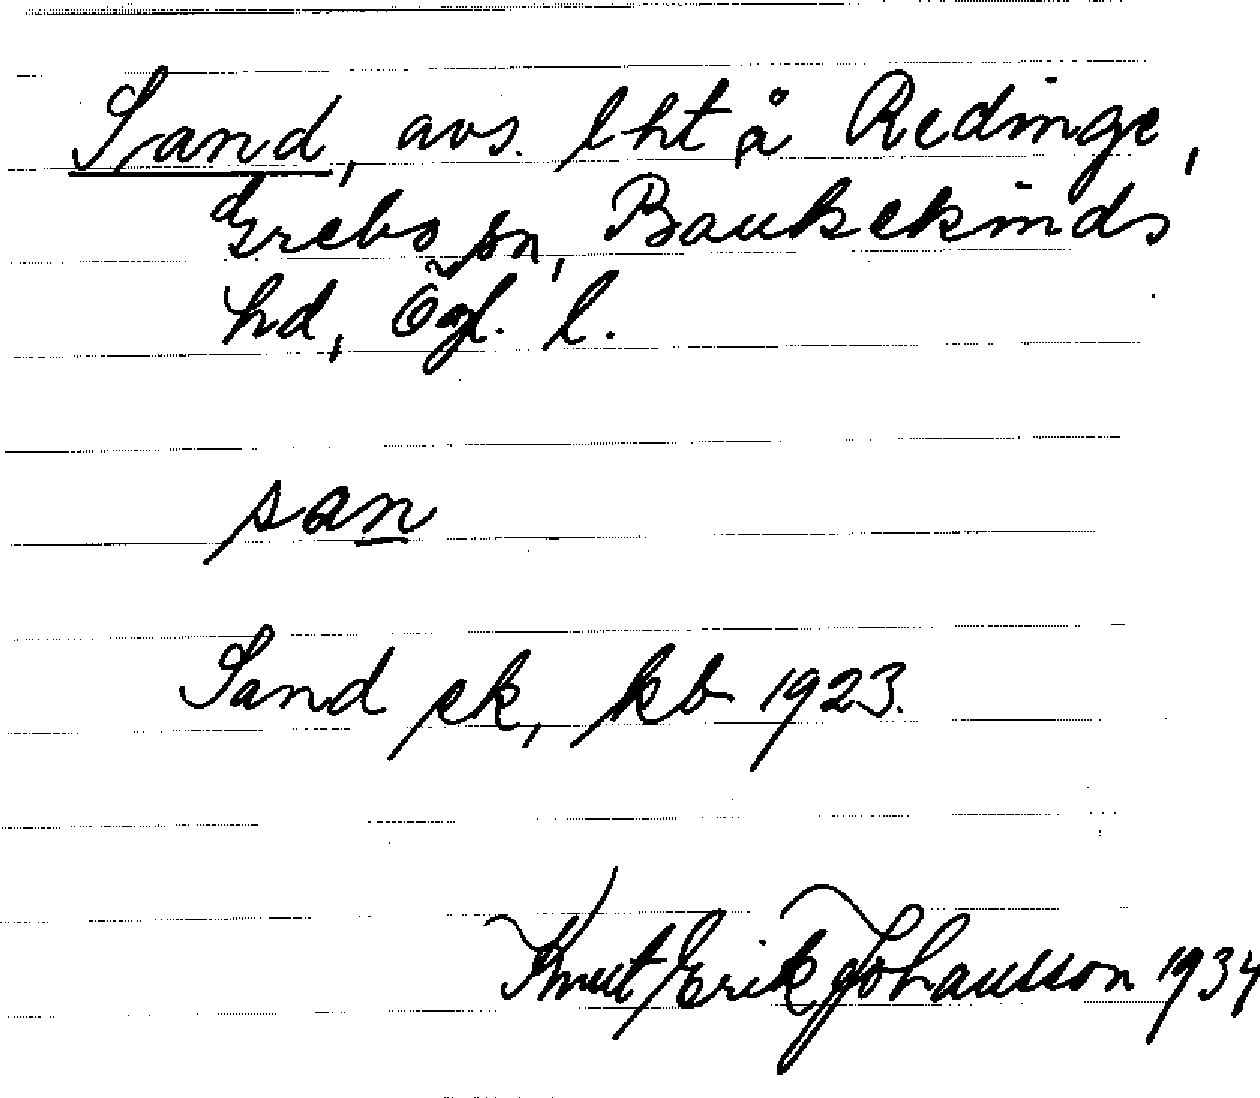 Sand, avs. lht å Redinge,
Grebo sn, Bankekinds
hd, Ögl. l.
san
Sand sk, kb 1923.
Knut Erik Johansson 1934